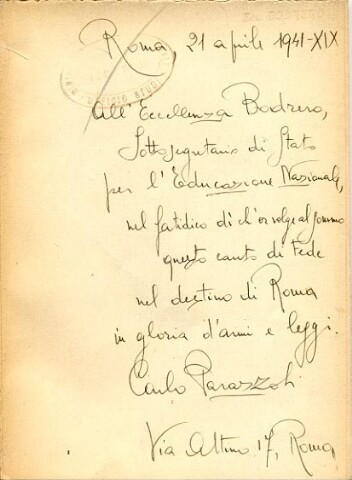 Roma, 21 aprile 1941-XIX
UFFICIO STUDI
All'Eccellenza Bodrero,
Sottosegretario di Stato
per l'Educazione Nazionale,
nel fatidico dì ch'or volge al sommo
questo canto di fede
nel destino di Roma
in gloria d'armi e leggi.
Carlo Parazzoli
Via 17, Roma